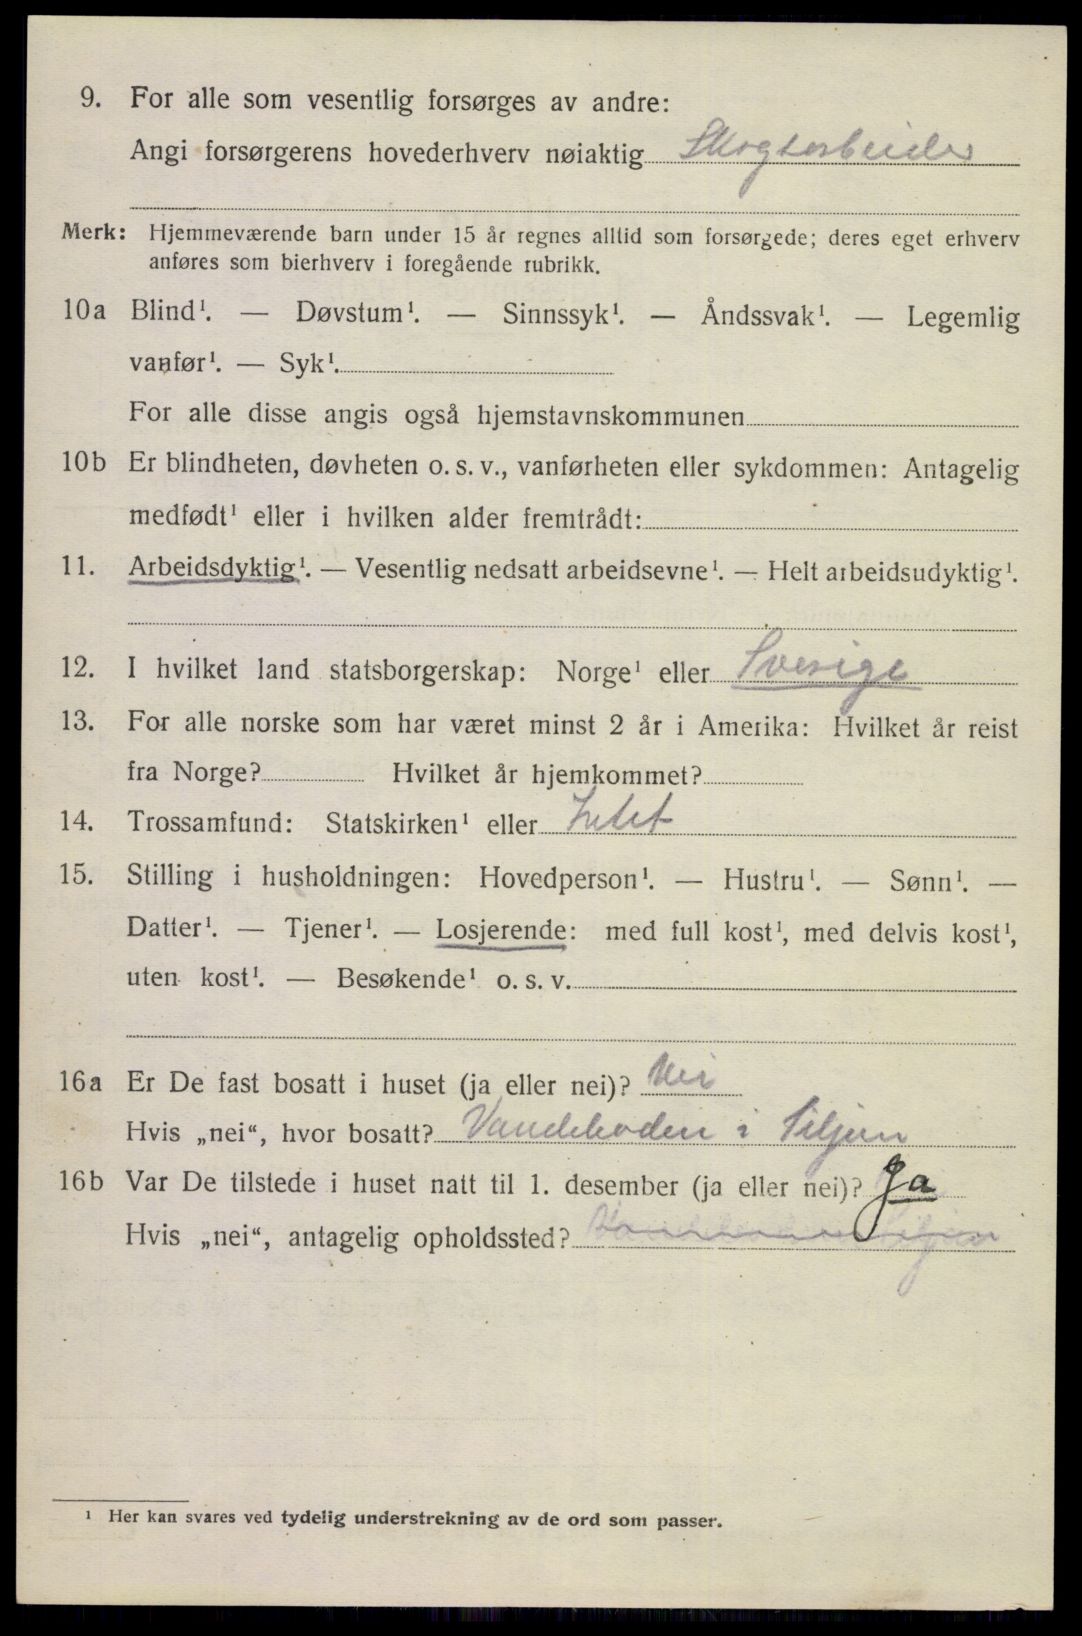 9. For alle som vesentlig forsørges av andre:
Angi forsørgerens hovederhverv nøiaktig Skogsarbeider
Merk: Hjemmeværende barn under 15 år regnes alltid som forsørgede; deres eget erhverv
anføres som bierhverv i foregående rubrikk.
10a Blind¹. — Døvstum¹. — Sinnssyk¹. — Åndssvak¹. — Legemlig
vanfør¹. — Syk¹.
For alle disse angis også hjemstavnskommunen
10b Er blindheten, døvheten o. s. v., vanførheten eller sykdommen: Antagelig
medfødt¹ eller i hvilken alder fremtrådt:
11. Arbeidsdyktig¹. — Vesentlig nedsatt arbeidsevne¹. — Helt arbeidsudyktig¹.
12. I hvilket land statsborgerskap: Norge¹ eller Sverige
13. For alle norske som har været minst 2 år i Amerika: Hvilket år reist
fra Norge? Hvilket år hjemkommet?
14. Trossamfund: Statskirken¹ eller Intet
15. Stilling i husholdningen: Hovedperson¹. — Hustru¹. — Sønn¹. —
Datter¹. — Tjener¹. — Losjerende: med full kost¹, med delvis kost¹,
uten kost¹. — Besøkende¹ o. s. v.
16a Er De fast bosatt i huset (ja eller nei)? Nei
Hvis „nei“, hvor bosatt? i Siljan
16b Var De tilstede i huset natt til 1. desember (ja eller nei)? Ja
Hvis „nei“, antagelig opholdssted? Siljan
¹ Her kan svares ved tydelig understrekning av de ord som passer.